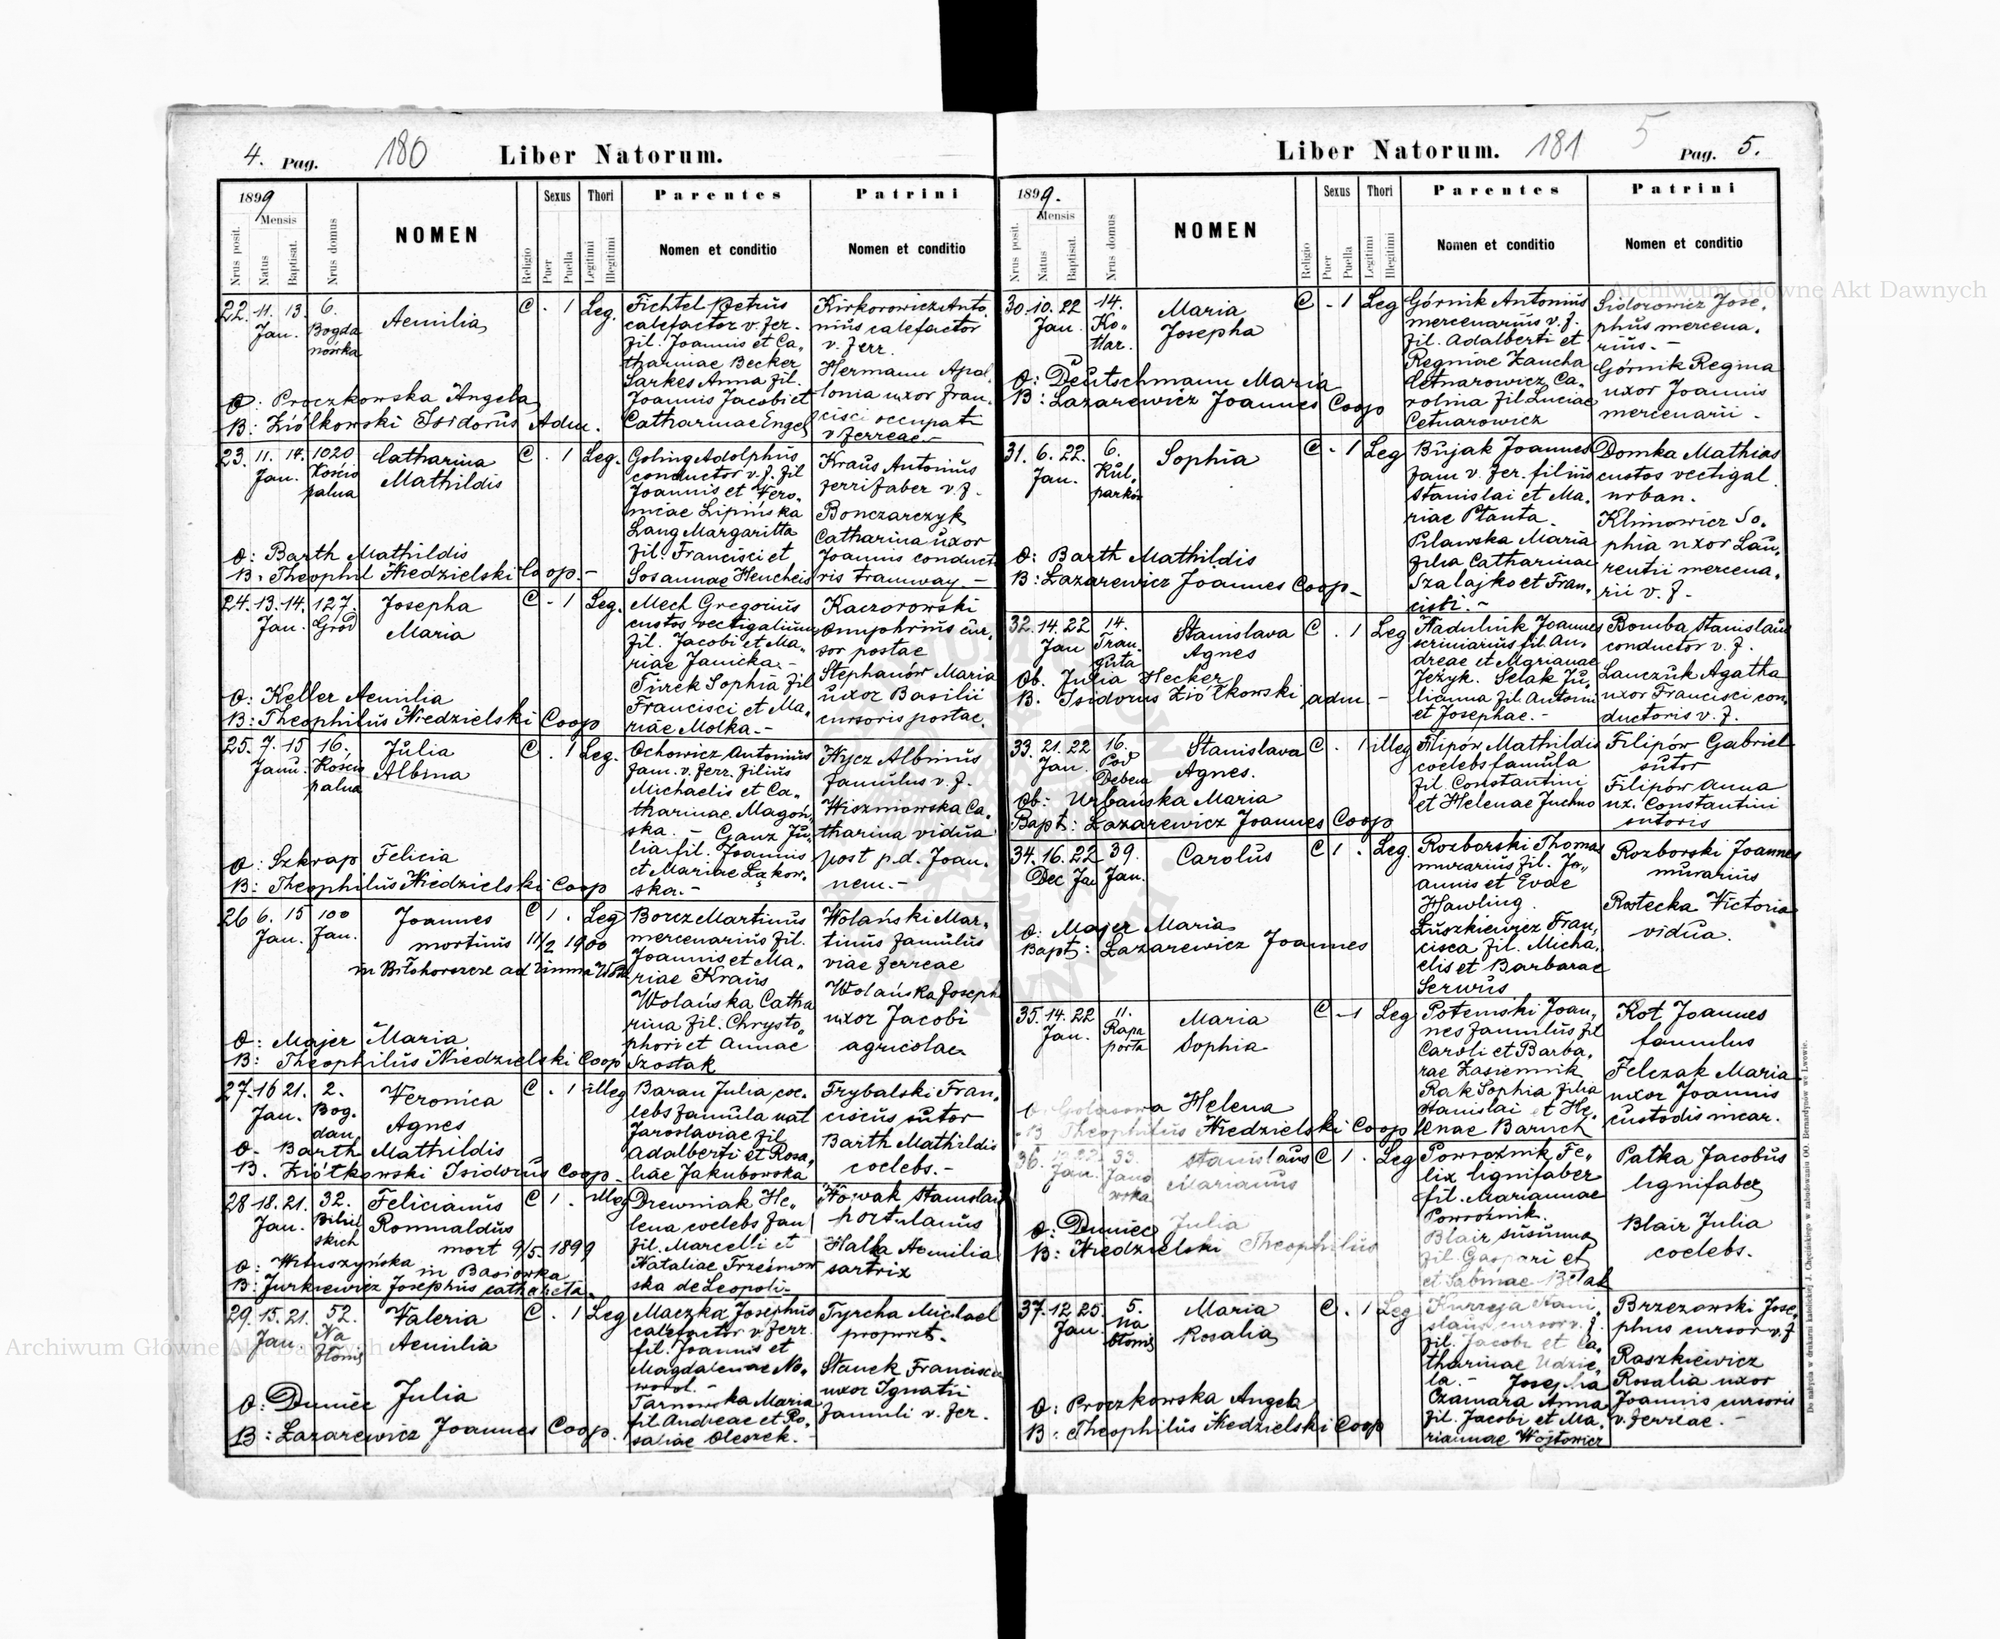 4. Pag. 180 Liber Natorum.
1899
Mensis
Nrus posit.
Natus
Baptisat.
Nrus domus
NOMEN
Religio
Sexus
Puer
Puella
Thori
Legitimi
Illegitimi
Parentes
Nomen et conditio
Patrini
Nomen et conditio
22. 11. 13. 6.
Jan. Bogda
nówka
Aemilia
C . 1 Leg.
Fichtel Petrus
calefactor v. fer.
fil. Joannis et Ca-
tharinae Becker
Sarkes Anna fil.
Joannis Jacobi et
Catharinae Engel
Kirkorowicz Anto-
nius calefactor
v. ferr.
Hermann Apol-
lonia uxor Fran-
cisci occupati
v. ferreae.-
O: Proczkowska Angela
B: Ziólkowski Isidorus Adm.
23. 11. 14. 1020
Jan. Kościo
palna
Catharina
Mathildis
C . 1 Leg.
Goling Adolphus
conductor v. f. fil
Joannis et Vero-
nicae Lipińska
Lang Margaritta
fil. Francisci et
Sosannae Hencheis
Kraus Antonius
ferrifaber v. f.
Bonczarczyk
Catharina uxor
Joannis conducto
ris tramway.-
O: Barth Mathildis
B: Theophil Niedzielski Coop.-
24. 13. 14. 127.
Jan. Gród
Josepha
Maria
C - 1 Leg.
Mech Gregorius
custos vectigalium
fil. Jacobi et Ma-
riae Janicka.-
Turek Sophia fil
Francisci et Ma-
riae Molka.-
Kaczorowski
Onuphrius cur-
sor postae
Stephanów Maria
uxor Basilii
cursoris postae.
O: Keller Aemilia
B: Theophilus Niedzielski Coop
25. 7. 15 16.
Janu. Kościo
palna
Julia
Albina
C . 1 Leg.
Ochowicz Antonius
fam. v. ferr. filius
Michaelis et Ca-
tharinae Magoń-
ska. - Ganz Ju-
lia fil. Joannis
et Mariae Łąkow-
ska.-
Hycz Albinus
famulus v. f.
Wiszniowska Ca-
tharina vidua
post p. d. Joan-
nem.-
O: Szkrap Felicia
B: Theophilus Niedzielski Coop
26 6. 15 100
Jan. Jan.
Joannes
mortuus 11/2 1900
C 1 . Leg
Borcz Martinus
mercenarius fil.
Joannis et Ma-
riae Kraus
Wolańska Catha
rina fil. Chrysto-
phori et Annae
Szostak
Wolański Mar-
tinus famulus
viae ferreae
Wolańska Joseph
uxor Jacobi
agricolae
O: Majer Maria
B: Theophilus Niedzielski Coop
27. 16 21. 2.
Jan. Bog-
dan.
Veronica
Agnes
C . 1 illeg
Baran Julia coe-
lebs famula nat
Jaroslaviae fil
Adalberti et Rosa-
liae Jakubowska
Frybalski Fran-
ciscus sutor
Barth Mathildis
coelebs.-
O. Barth Mathildis
B. Ziółkowski Isidorus Coop
28 18. 21. 32.
Jan. Biliń
skich
Felicianus
Romualdus
mort 9/5. 1899
in Basiówka
C 1 . illeg
Drewniak He-
lena coelebs fam
fil. Marcelli et
Nataliae Trześniow
ska de Leopoli-
Nowak Stanislaus
portulanus
Halla Aemilia
sartrix
O: Wituszyńska
B: Jurkiewicz Josephus catheheta.
29. 15. 21. 52.
Jan. Na
błonie
Valeria
Aemilia
C . 1 Leg
Maczka Josephus
calefactor v. ferr.
fil. Joannis et
Magdalenae No-
wood.-
Tarnowska Maria
fil. Andreae et Ro-
saliae Oleszek.-
Tyrcha Michael
propriet.
Stanek Francisca
uxor Ignatii
famuli v. fer.
O: Duniec Julia
B: Lazarewicz Joannes Coop.
Liber Natorum. 181 5 Pag. 5.
1899.
Mensis
Nrus posit.
Natus
Baptisat.
Nrus domus
NOMEN
Religio
Sexus
Puer
Puella
Thori
Legitimi
Illegitimi
Parentes
Nomen et conditio
Patrini
Nomen et conditio
30. 10. 22 14.
Jan. Ko-
tlar.
Maria
Josepha
C - 1 Leg
Górnik Antonius
mercenarius v. f.
fil. Adalberti et
Reginae Zaucha
Cetnarowicz Ca-
rolina fil. Luciae
Cetnarowicz
Sidorowicz Jose-
phus mercena-
rius.-
Górnik Regina
uxor Joannis
mercenarii.
O: Deutschmann Maria
B: Lazarewicz Joannes Coop
31. 6. 22. 6.
Jan. Kul-
parków
Sophia
C - 1 Leg
Bujak Joannes
fam v. fer. filius
Stanislai et Ma-
riae Ptanta.
Pilawska Maria
filia Catharinae
Szalajko et Fran-
cisci.-
Domka Mathias
custos vectigal.
urban.
Klimowicz So-
phia uxor Lau-
rentii mercena-
rii v. f.
O: Barth Mathildis
B: Lazarewicz Joannes Coop-
32. 14. 22 14.
Jan Fran-
Stanislava
Agnes
C . 1 Leg
Nadulnik Joannes
scriniarius fil. An-
dreae et Marianae
Jeżyk. Selak Ju-
lianna fil. Antoni
et Josephae.-
Bomba Stanislaus
conductor v. f.
Lanczuk Agatha
uxor Francisci con-
ductoris v. f.
Ob. Julia Hecker
B. Isidorus Ziółkowski adm -
33. 21. 22 16.
Jan. Pod
Debem
Stanislava
Agnes.
C . 1 illeg
Filipór Mathildis
coelebs famula
fil. Constantini
et Helenae Juchno
Filipór Gabriel
sutor
Filipór Anna
ux. Constantini
sutoris
Ob: Urbańska Maria
Bapt: Lazarewicz Joannes Coop
34. 16. 22 39.
Dec Jan Jan.
Carolus
C 1 . Leg
Rozborski Thomas
murarius fil. Jo-
annis et Evae
Hawling.
Łuszkiewicz Fran-
cisca fil. Micha-
elis et Barbarae
Serwus
Rozborski Joannes
murarius
Rostecka Victoria
vidua.
O: Majer Maria
Bapt: Lazarewicz Joannes
35. 14. 22 11.
Jan. Rapa
porta
Maria
Sophia
C - 1 Leg
Potemski Joan-
nes famulus fil
Caroli et Barba-
rae Zasiennik
Rak Sophia filia
Stanislai et He-
lenae Baruch
Kot Joannes
famulus
Felczak Maria
uxor Joannis
custodis incar.
O: Golasowa Helena
B Theophilus Niedzielski Coop
36. 33.
Jan. Jano
wska
Stanislaus
Marianus
C 1 . Leg
Powroźnik Fe-
lix lignifaber
fil. Mariannae
Powroźnik.
Blair Susanna
fil. Gaspari et
et Sabinae Belak
Patka Jacobus
lignifaber
Blair Julia
coelebs.
O: Duniec Julia
B: Niedzielski Theophilus
37. 12. 25 5.
Jan. na
błonie
Maria
Rosalia
C . 1 Leg
Kurzeja Stani-
slaus cursor v. f.
fil. Jacobi et Ca-
tharinae Udzie-
la.- Josepha
Czamara Anna
fil. Jacobi et Ma-
riannae Wojtowicz
Brzezowski Jose-
phus cursor v. f
Raszkiewicz
Rosalia uxor
Joannis cursoris
v. ferreae.-
O: Proczkowska Angela
B: Theophilus Niedzielski Coop
Do nabycia w drukarni katolickiej J. Chęcińskiego w zabudowaniu OO. Bernardynów we Lwowie.
Archiwum Główne Akt Dawnych
Archiwum Główne Akt Dawnych